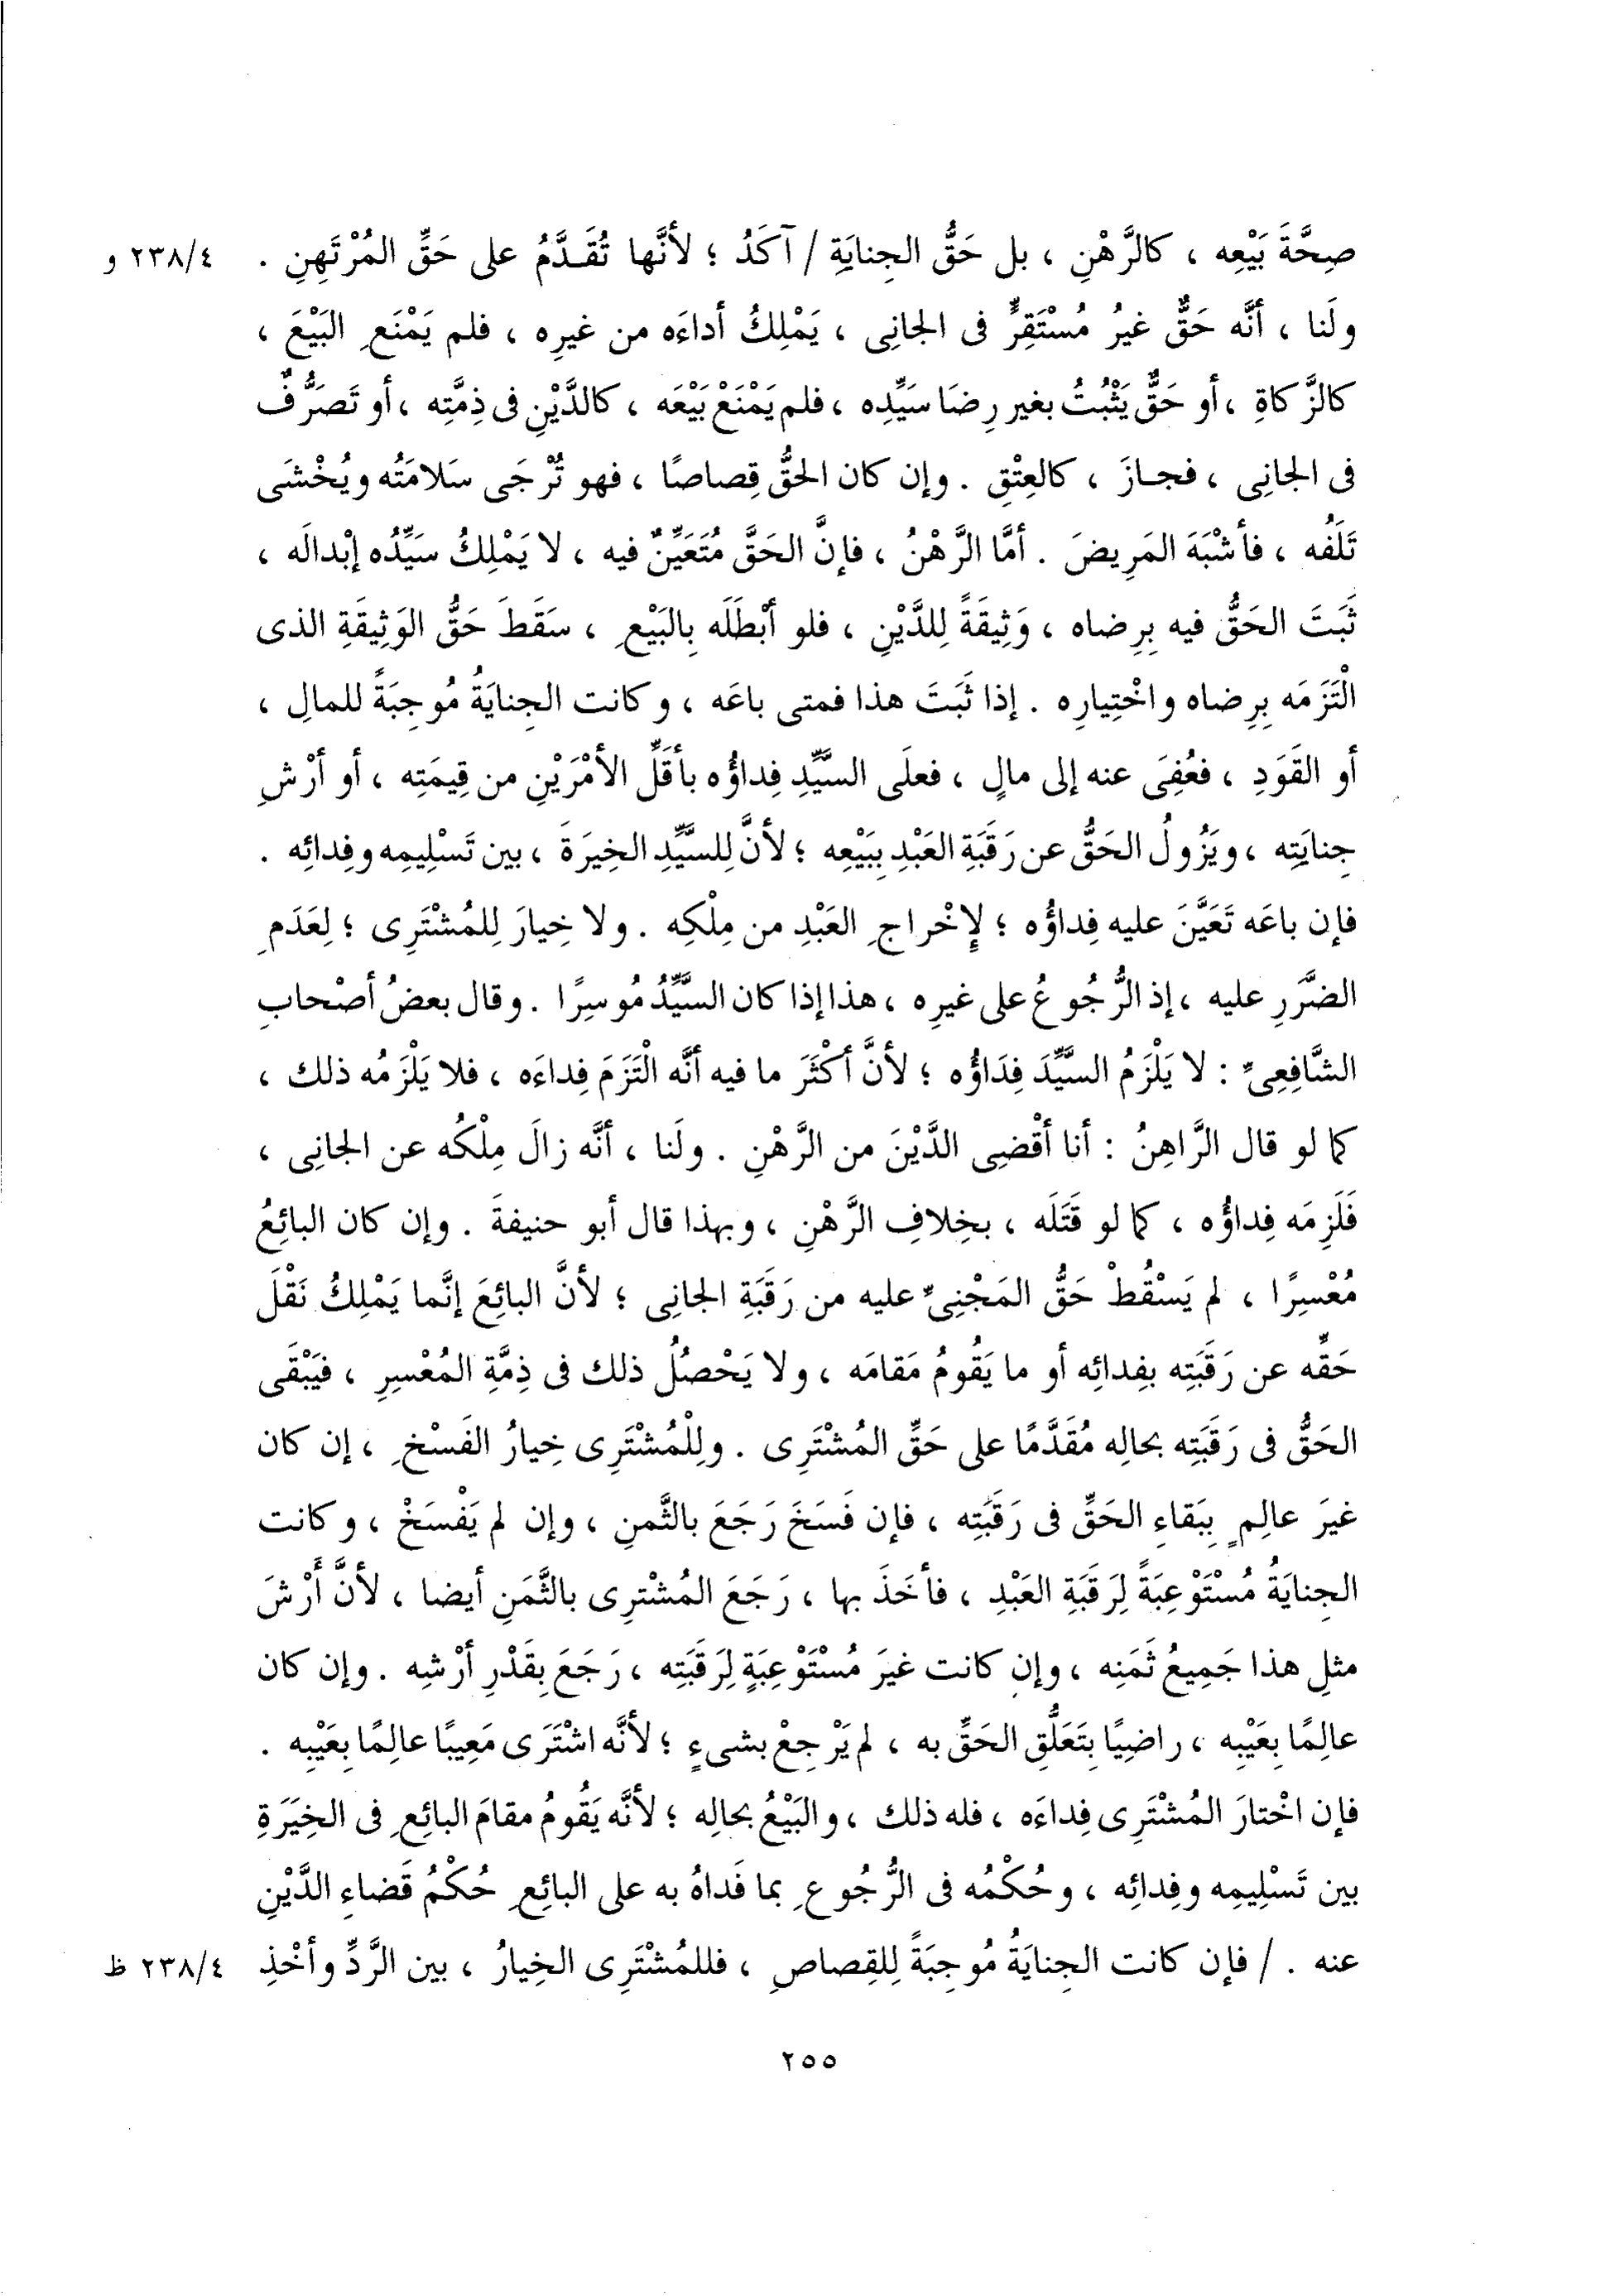 صِحَّةَ بَيْعِه ، كالرَّهْنِ ، بل حَقُّ الجِنايَةِ / آكَدُ ؛ لأنَّها تُقَدَّمُ على حَقِّ المُرْتَهِنِ . ٢٣٨/٤ و
ولَنا ، أنَّه حَقٌّ غيرُ مُسْتَقِرٍّ فى الجانِى ، يَمْلِكُ أداءَه من غيرِه ، فلم يَمْنَعِ البَيْعَ ،
كالزَّكاةِ ، أو حَقٌّ يَثْبُتُ بغير رِضَا سَيِّدِه ، فلم يَمْنَعْ بَيْعَه ، كالدَّيْنِ فى ذِمَّتِه ، أو تَصَرُّفٌ
فى الجانِى ، فجازَ ، كالعِتْقِ . وإن كان الحَقُّ قِصاصًا ، فهو تُرْجَى سَلامَتُه ويُخْشَى
تَلَفُه ، فأشْبَهَ المَرِيضَ . أمَّا الرَّهْنُ ، فإنَّ الحَقَّ مُتَعَيِّنٌ فيه ، لا يَمْلِكُ سَيِّدُه إبْدالَه ،
ثَبَتَ الحَقُّ فيه بِرِضاه ، وَثِيقَةً لِلدَّيْنِ ، فلو أبْطَلَه بِالبَيْعِ ، سَقَطَ حَقُّ الوَثِيقَةِ الذى
الْتَزَمَه بِرِضاه واخْتِيارِه . إذا ثَبَتَ هذا فمتى باعَه ، وكانت الجِنايَةُ مُوجِبَةً للمالِ ،
أو القَوَدِ ، فعُفِىَ عنه إلى مالٍ ، فعلَى السَّيِّدِ فِداؤُه بأقَلِّ الأمْرَيْنِ من قِيمَتِه ، أو أرْشِ
جِنايَتِه ، ويَزُولُ الحَقُّ عن رَقَبَةِ العَبْدِ بِبَيْعِه ؛ لأنَّ لِلسَّيِّدِ الخِيرَةَ ، بين تَسْلِيمِه وفِدائِه .
فإن باعَه تَعَيَّنَ عليه فِداؤُه ؛ لإِخْراجِ العَبْدِ من مِلْكِه . ولا خِيارَ لِلمُشْتَرِى ؛ لِعَدَمِ
الضَّرَرِ عليه ، إذ الرُّجُوعُ على غيرِه ، هذا إذا كان السَّيِّدُ مُوسِرًا . وقال بعضُ أصْحابِ
الشَّافِعِىِّ : لا يَلْزَمُ السَّيِّدَ فِدَاؤُه ؛ لأنَّ أكْثَرَ ما فيه أنَّه الْتَزَمَ فِداءَه ، فلا يَلْزَمُه ذلك ،
كما لو قال الرَّاهِنُ : أنا أقْضِى الدَّيْنَ من الرَّهْنِ . ولَنا ، أنَّه زالَ مِلْكُه عن الجانِى ،
فَلَزِمَه فِداؤُه ، كما لو قَتَلَه ، بخِلافِ الرَّهْنِ ، وبهذا قال أبو حنيفةَ . وإن كان البائِعُ
مُعْسِرًا ، لم يَسْقُطْ حَقُّ المَجْنِىِّ عليه من رَقَبَةِ الجانِى ؛ لأنَّ البائِعَ إنَّما يَمْلِكُ نَقْلَ
حَقِّه عن رَقَبَتِه بفِدائِه أو ما يَقُومُ مَقامَه ، ولا يَحْصُلُ ذلك فى ذِمَّةِ المُعْسِرِ ، فيَبْقَى
الحَقُّ فى رَقَبَتِه بحالِه مُقَدَّمًا على حَقِّ المُشْتَرِى . ولِلْمُشْتَرِى خِيارُ الفَسْخِ ، إن كان
غيرَ عالِمٍ بِبَقاءِ الحَقِّ فى رَقَبَتِه ، فإن فَسَخَ رَجَعَ بالثَّمنِ ، وإن لم يَفْسَخْ ، وكانت
الجِنايَةُ مُسْتَوْعِبَةً لِرَقَبَةِ العَبْدِ ، فأخَذَ بها ، رَجَعَ المُشْتَرِى بالثَّمَنِ أيضا ، لأنَّ أَرْشَ
مثلِ هذا جَمِيعُ ثَمَنِه ، وإن كانت غيرَ مُسْتَوْعِبَةٍ لِرَقَبَتِه ، رَجَعَ بِقَدْرِ أرْشِه . وإن كان
عالِمًا بِعَيْبِه ، راضِيًا بِتَعَلُّقِ الحَقِّ به ، لم يَرْجِعْ بشىءٍ ؛ لأنَّه اشْتَرَى مَعِيبًا عالِمًا بِعَيْبِه .
فإن اخْتارَ المُشْتَرِى فِداءَه ، فله ذلك ، والبَيْعُ بحالِه ؛ لأنَّه يَقُومُ مقامَ البائِعِ فى الخِيَرَةِ
بين تَسْلِيمِه وفِدائِه ، وحُكْمُه فى الرُّجُوعِ بما فَداهُ به على البائِعِ حُكْمُ قَضاءِ الدَّيْنِ
عنه . / فإن كانت الجِنايَةُ مُوجِبَةً لِلقِصاصِ ، فللمُشْتَرِى الخِيارُ ، بين الرَّدِّ وأخْذِ ٢٣٨/٤ ظ
٢٥٥